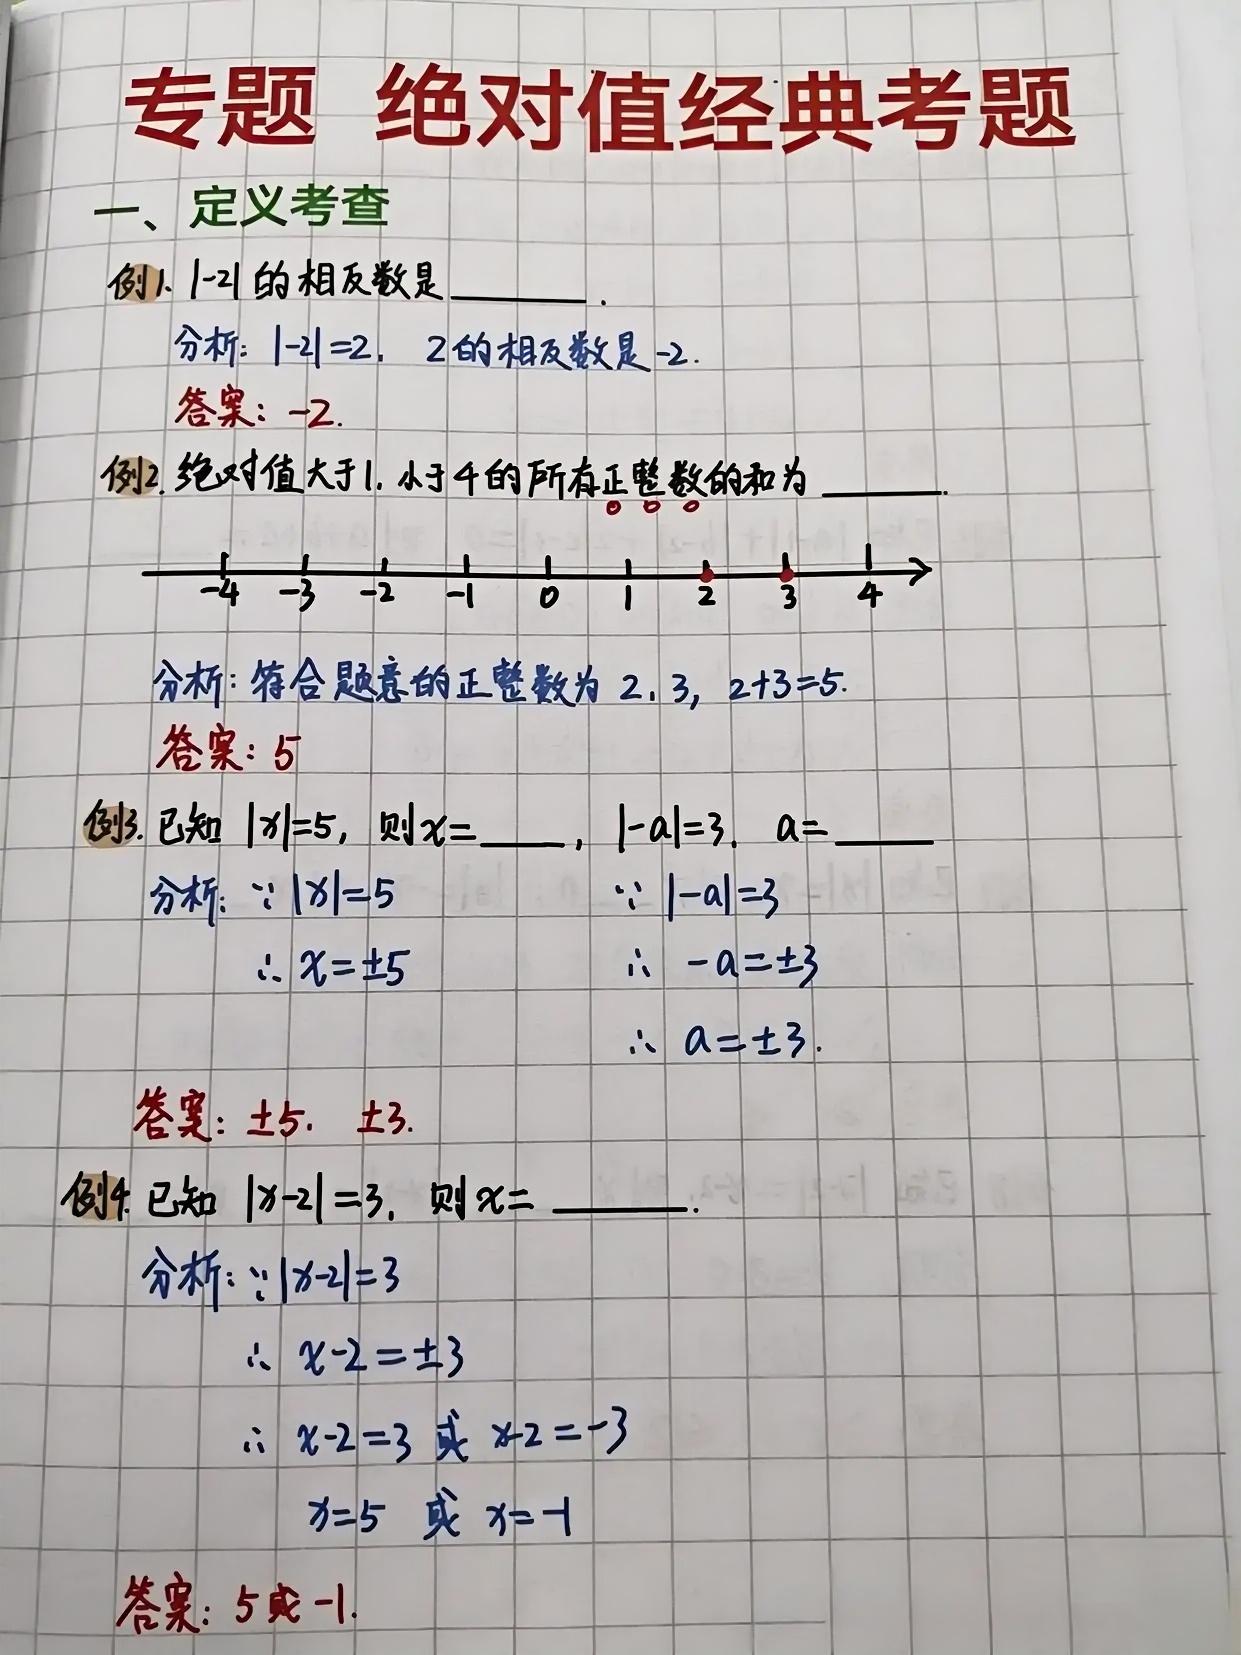 专题 绝对值经典考题
一、定义考查
例1. |-2| 的相反数是______.
分析: |-2|=2, 2的相反数是-2.
答案: -2.
例2. 绝对值大于1, 小于4的所有正整数的和为______.
-4 -3 -2 -1 0 1 2 3 4
分析: 符合题意的正整数为 2, 3, 2+3=5.
答案: 5
例3. 已知 |x|=5, 则x=____, |-a|=3, a=____
分析: ∵ |x|=5 ∵ |-a|=3
∴ x=±5 ∴ -a=±3
∴ a=±3.
答案: ±5. ±3.
例4. 已知 |x-2|=3, 则x=______.
分析: ∵|x-2|=3
∴ x-2=±3
∴ x-2=3 或 x-2=-3
x=5 或 x=-1
答案: 5或-1.